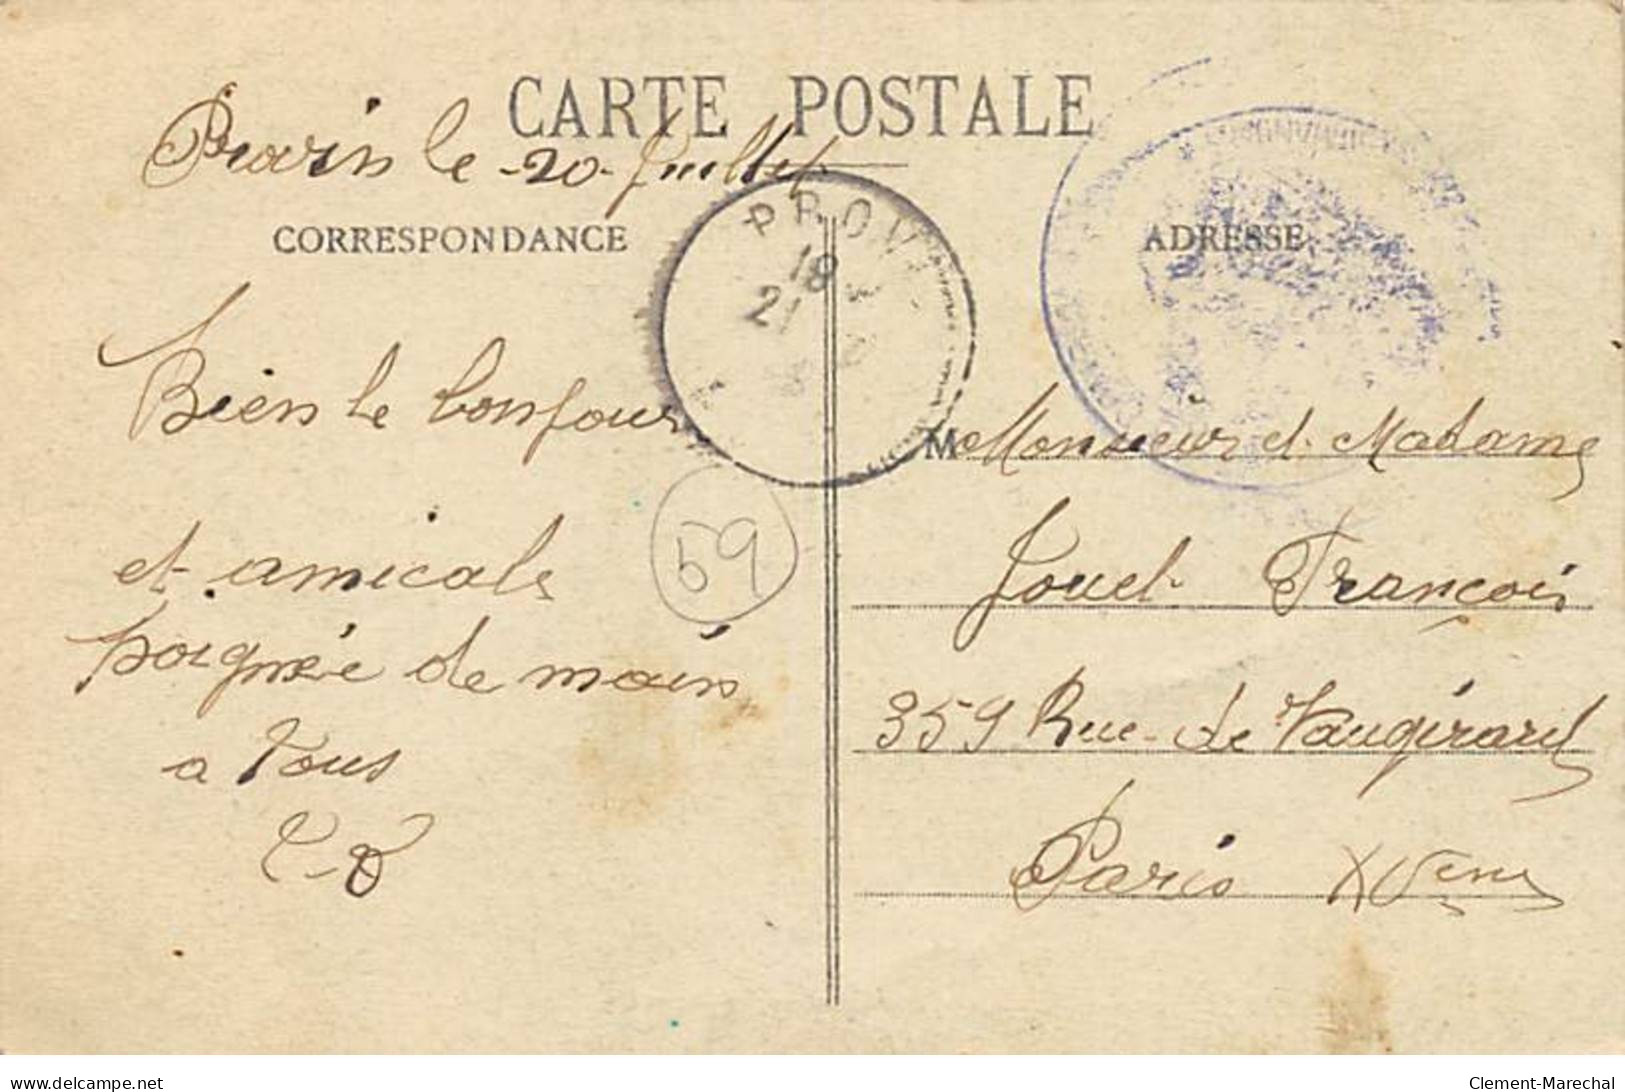 CARTE POSTALE
le 20 Juillet
CORRESPONDANCE
ADRESSE
PROV
18
21
Bien le bonjour
et amicale
poignée de main
a Vous
59
M Monsieur et Madame
Jouet François
359 Rue de Vaugirard
Paris XVeme
www.delcampe.net
Clement-Marechal